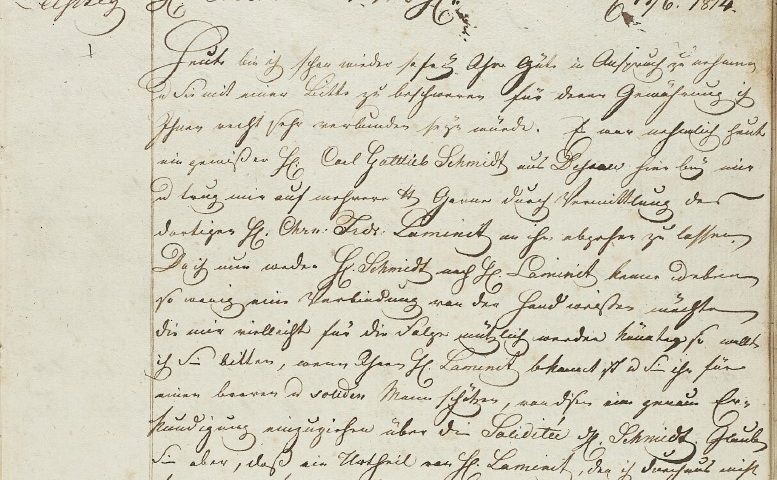 Leipzig H. 17/6. 1814.
Heute bin ich schon wieder so frey Ihre Güte in Anspruch zu nehmen
u Sie mit einer Bitte zu beschweren für deren Gewährung ich
Ihnen recht sehr verbunden seyn würde. Es war nehmlich heute
ein gewißer H. Carl Gottlieb Schmidt aus Dessau hier bey mir
u trug mir auf mehrere Garne durch Vermittlung des
dortigen H. Chrn: Frdr: Laminit an ihn abgehen zu lassen.
Da ich nun weder H. Schmidt noch H. Laminit kenne u eben
so wenig eine Verbindung von der Hand weisen möchte
die mir vielleicht für die Folge nützlich werden könnte, so wollt
ich Sie bitten, wenn Ihnen H. Laminit bekannt ist u Sie ihn für
einen braven u soliden Mann schätzen, von disen eine genaue Er=
kundigung einzuziehen über die Solidité H. Schmidt. Glauben
Sie aber, daß ein Urtheil von H. Laminit, den ich durchaus nicht